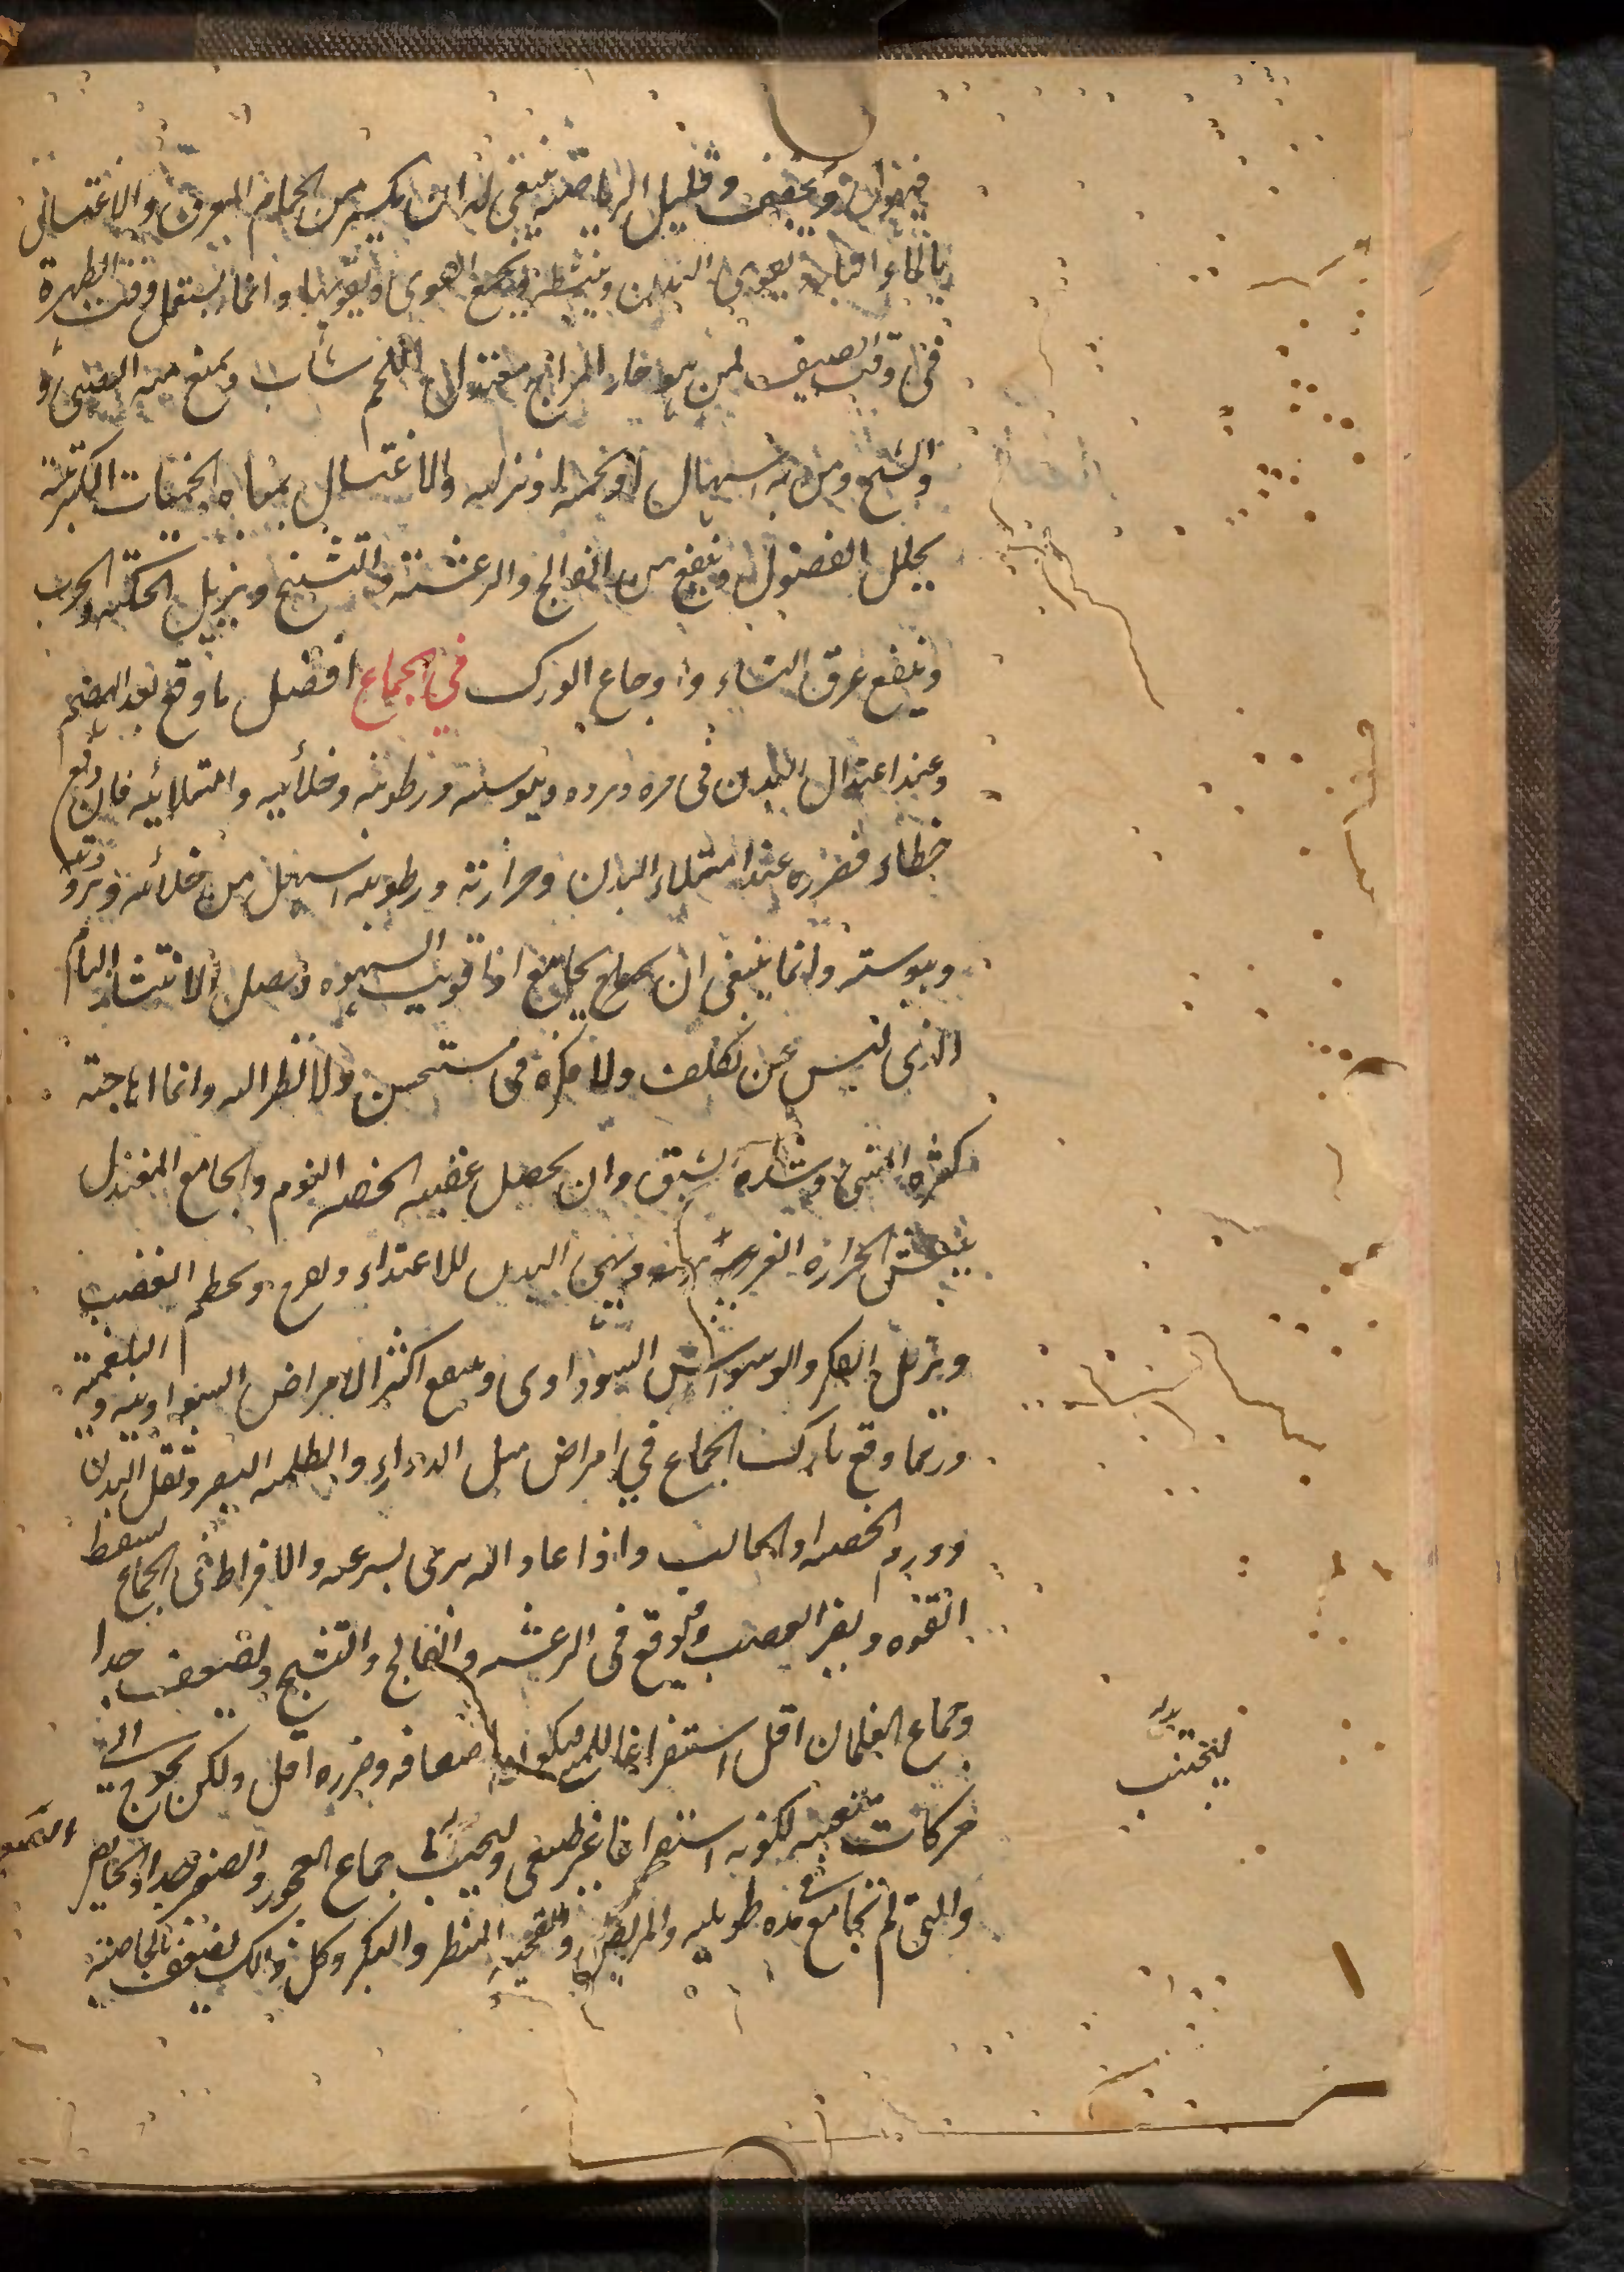 فيهزل ويجفف وقليل الرياضة ينبغي له ان يكثر من الحمام المعرق والاغتسال
بالماء البارد يقوى البدن وينشطه ويجمع القوى ويقويها وانما يستعمل وقت الظهيرة
فى وقت الصيف لمن هو حار المزاج معتدل اللحم شاب ويمنع منه الصبى و
والشيخ ومن به اسهال او تخمة او نزلة والاغتسال بمياه الحمات الكبريتية
يحلل الفضول وينفع من الفالج والرعشة والتشنج ويزيل الحكة والجرب
وينفع عرق النساء واوجاع الورك في الجماع افضل ما وقع بعد الهضم
وعند اعتدال البدن فى حره وبرده ويبوسته ورطوبته وخلائيه وامتلائيه فان وقع
خطاء فضرره عند امتلاء البدن وحرارته ورطوبته اسهل من خلائه وبرودته
ويبوسته وانما ينبغى ان يجامع اذا قويت الشهوه وحصل الانتشار التام
الذى ليس عن تكلف ولا فكرة فى مستحسن ولا نظر اليه وانما اهاجته
كثرة المنى وشدة الشبق وان يحصل عقيبه الخفه النوم والجامع المعتدل
ينعش الحرارة الغريزية ويهيئ البدن للاغتذاء ويفرح ويحطم الغضب
ويزيل الفكر والوسواس السوداوى وينفع اكثر الامراض السوداوية والبلغمية
وربما وقع تارك الجماع في امراض مثل الدوار والظلمة البصر وثقل البدن
وورم الخصية او الحالب واذا عاد اليه برئ بسرعه والافراط فى الجماع يسقط
القوه ويضر العصب ويوقع فى الرعشه والفالج والتشنج ويضعف جدا
وجماع الغلمان اقل استفراغا للمنى فيكون اضعافه وضرره اقل ولكن يحوج الى
حركات متعبه لكونه استفراغا غير طبيعى وليجتنب جماع العجوز والصغيرة جدا والحائض
والتى لم تجامع فى مدة طويله والمريض والقبيحة المنظر والبكر وكل ذالك يضعف بالخاصية
ليجتنب